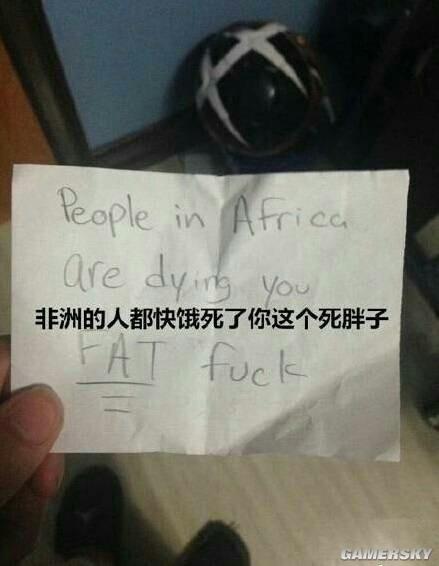 People in Africa
are dying you
非洲的人都快饿死了你这个死胖子
FAT fuck
GAMERSKY